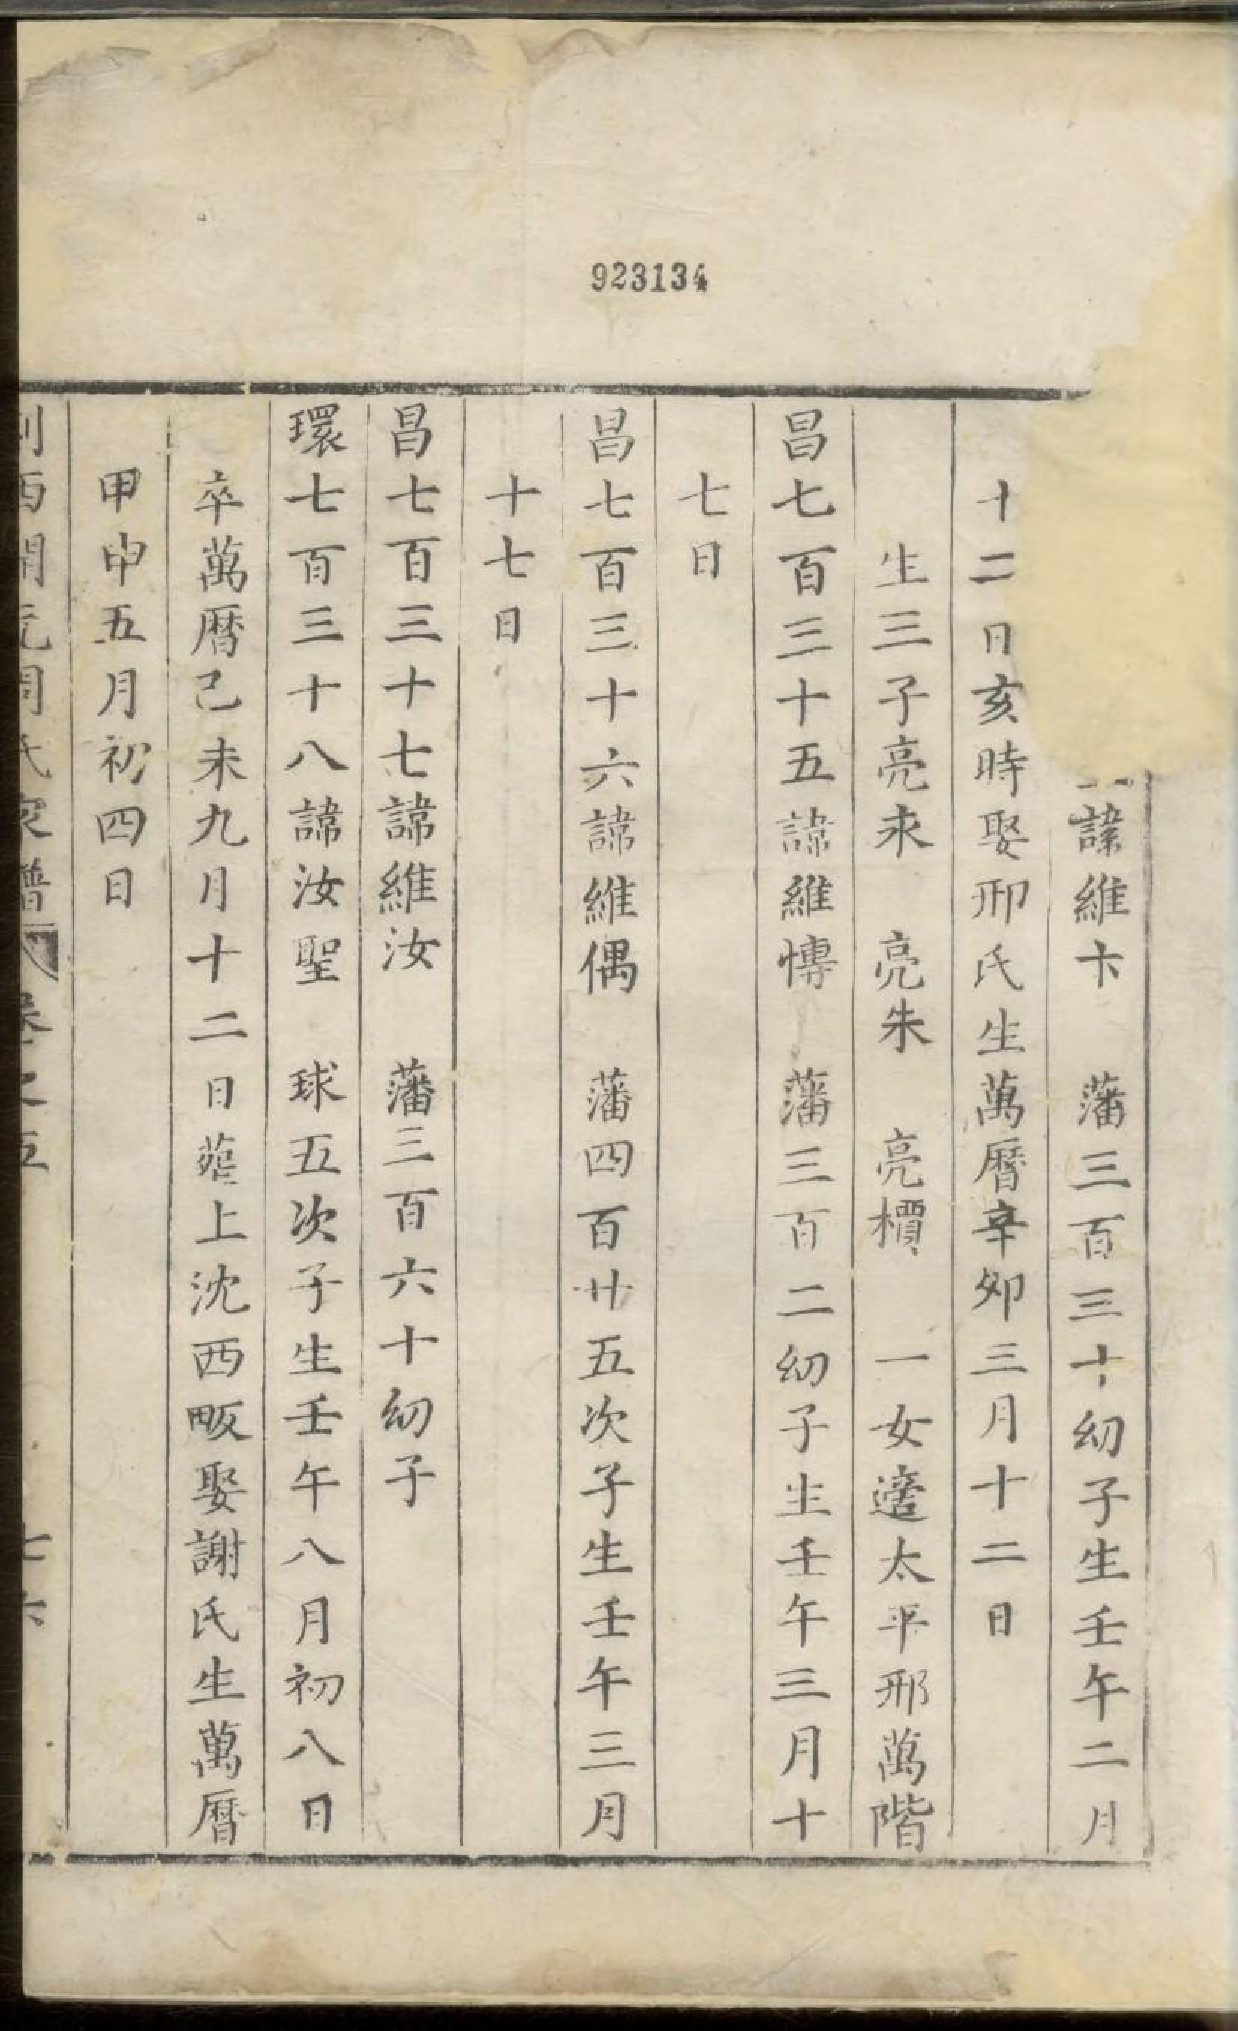 923134
諱維卞　藩三百三十幼子生壬午二月
十二日亥時娶邢氏生萬曆辛夘三月十二日
生三子亮來　亮朱　亮檟　一女適太平邢萬階
昌七百三十五諱維慱　藩三百二幼子生壬午三月十
七日
昌七百三十六諱維偶　藩四百廿五次子生壬午三月
十七日
昌七百三十七諱維汝　藩三百六十幼子
環七百三十八諱汝聖　球五次子生壬午八月初八日
卒萬曆己未九月十二日葬上沈西畈娶謝氏生萬曆
甲申五月初四日
西開元周氏家譜　卷之五　七六